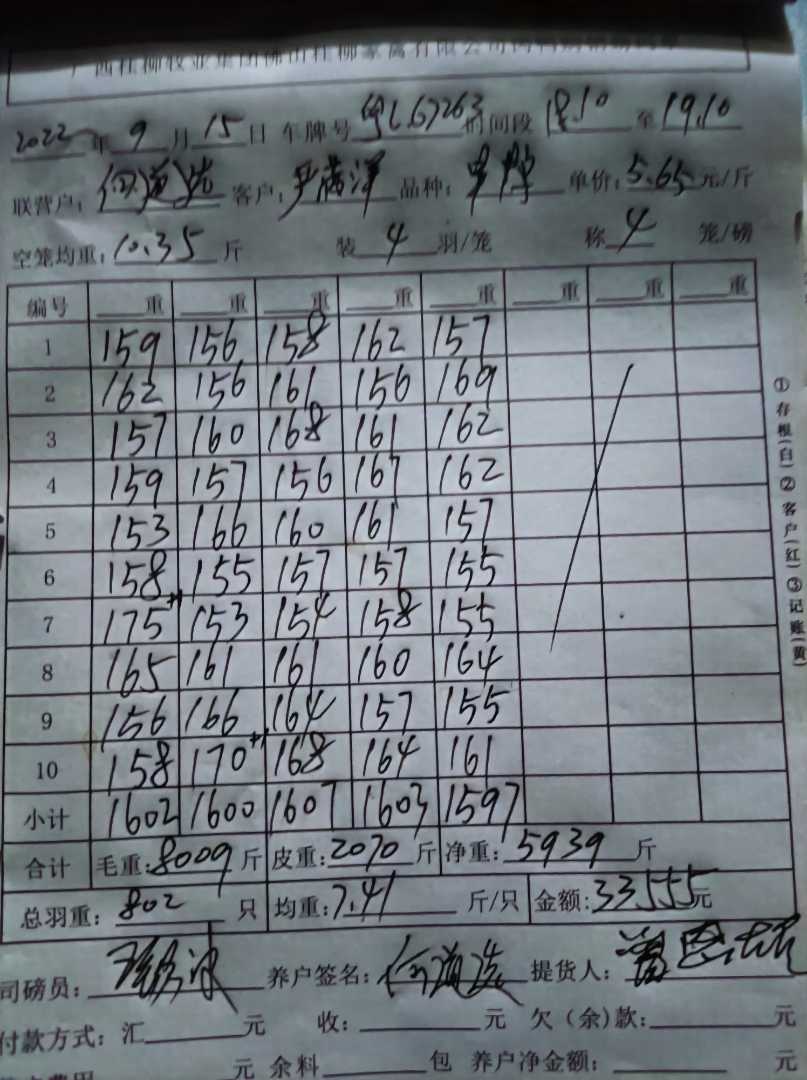 广西桂柳牧业集团佛山桂柳家禽有限公司肉鸭购销磅码单
2022年 9 月 15 日 车牌号 67263 时间段 18.10 至 19.10
联营户: 何道选 客户: 严 洋 品种: 单价: 5.65 元/斤
空笼均重: 10.35 斤 装 4 羽/笼 称 4 笼/磅
编号 重 重 重 重 重 重 重 重
1 159 156 158 162 157
2 162 156 161 156 169
3 157 160 168 161 162
4 159 157 156 167 162
5 153 166 160 161 157
6 158 155 157 157 155
7 175+1 153 154 158 155
8 165 161 161 160 164
9 156 166 164 157 155
10 158 170+1 168 164 161
小计 1602 1600 1607 1603 1597
合计 毛重: 8009 斤 皮重: 2070 斤 净重: 5939 斤
总羽重: 802 只 均重: 7.41 斤/只 金额: 33555 元
司磅员: 养户签名: 何道选 提货人:
付款方式: 汇 元 收: 元 欠(余)款: 元
元 余料 包 养户净金额: 元
①存根(白)②客户(红)③记账(黄)